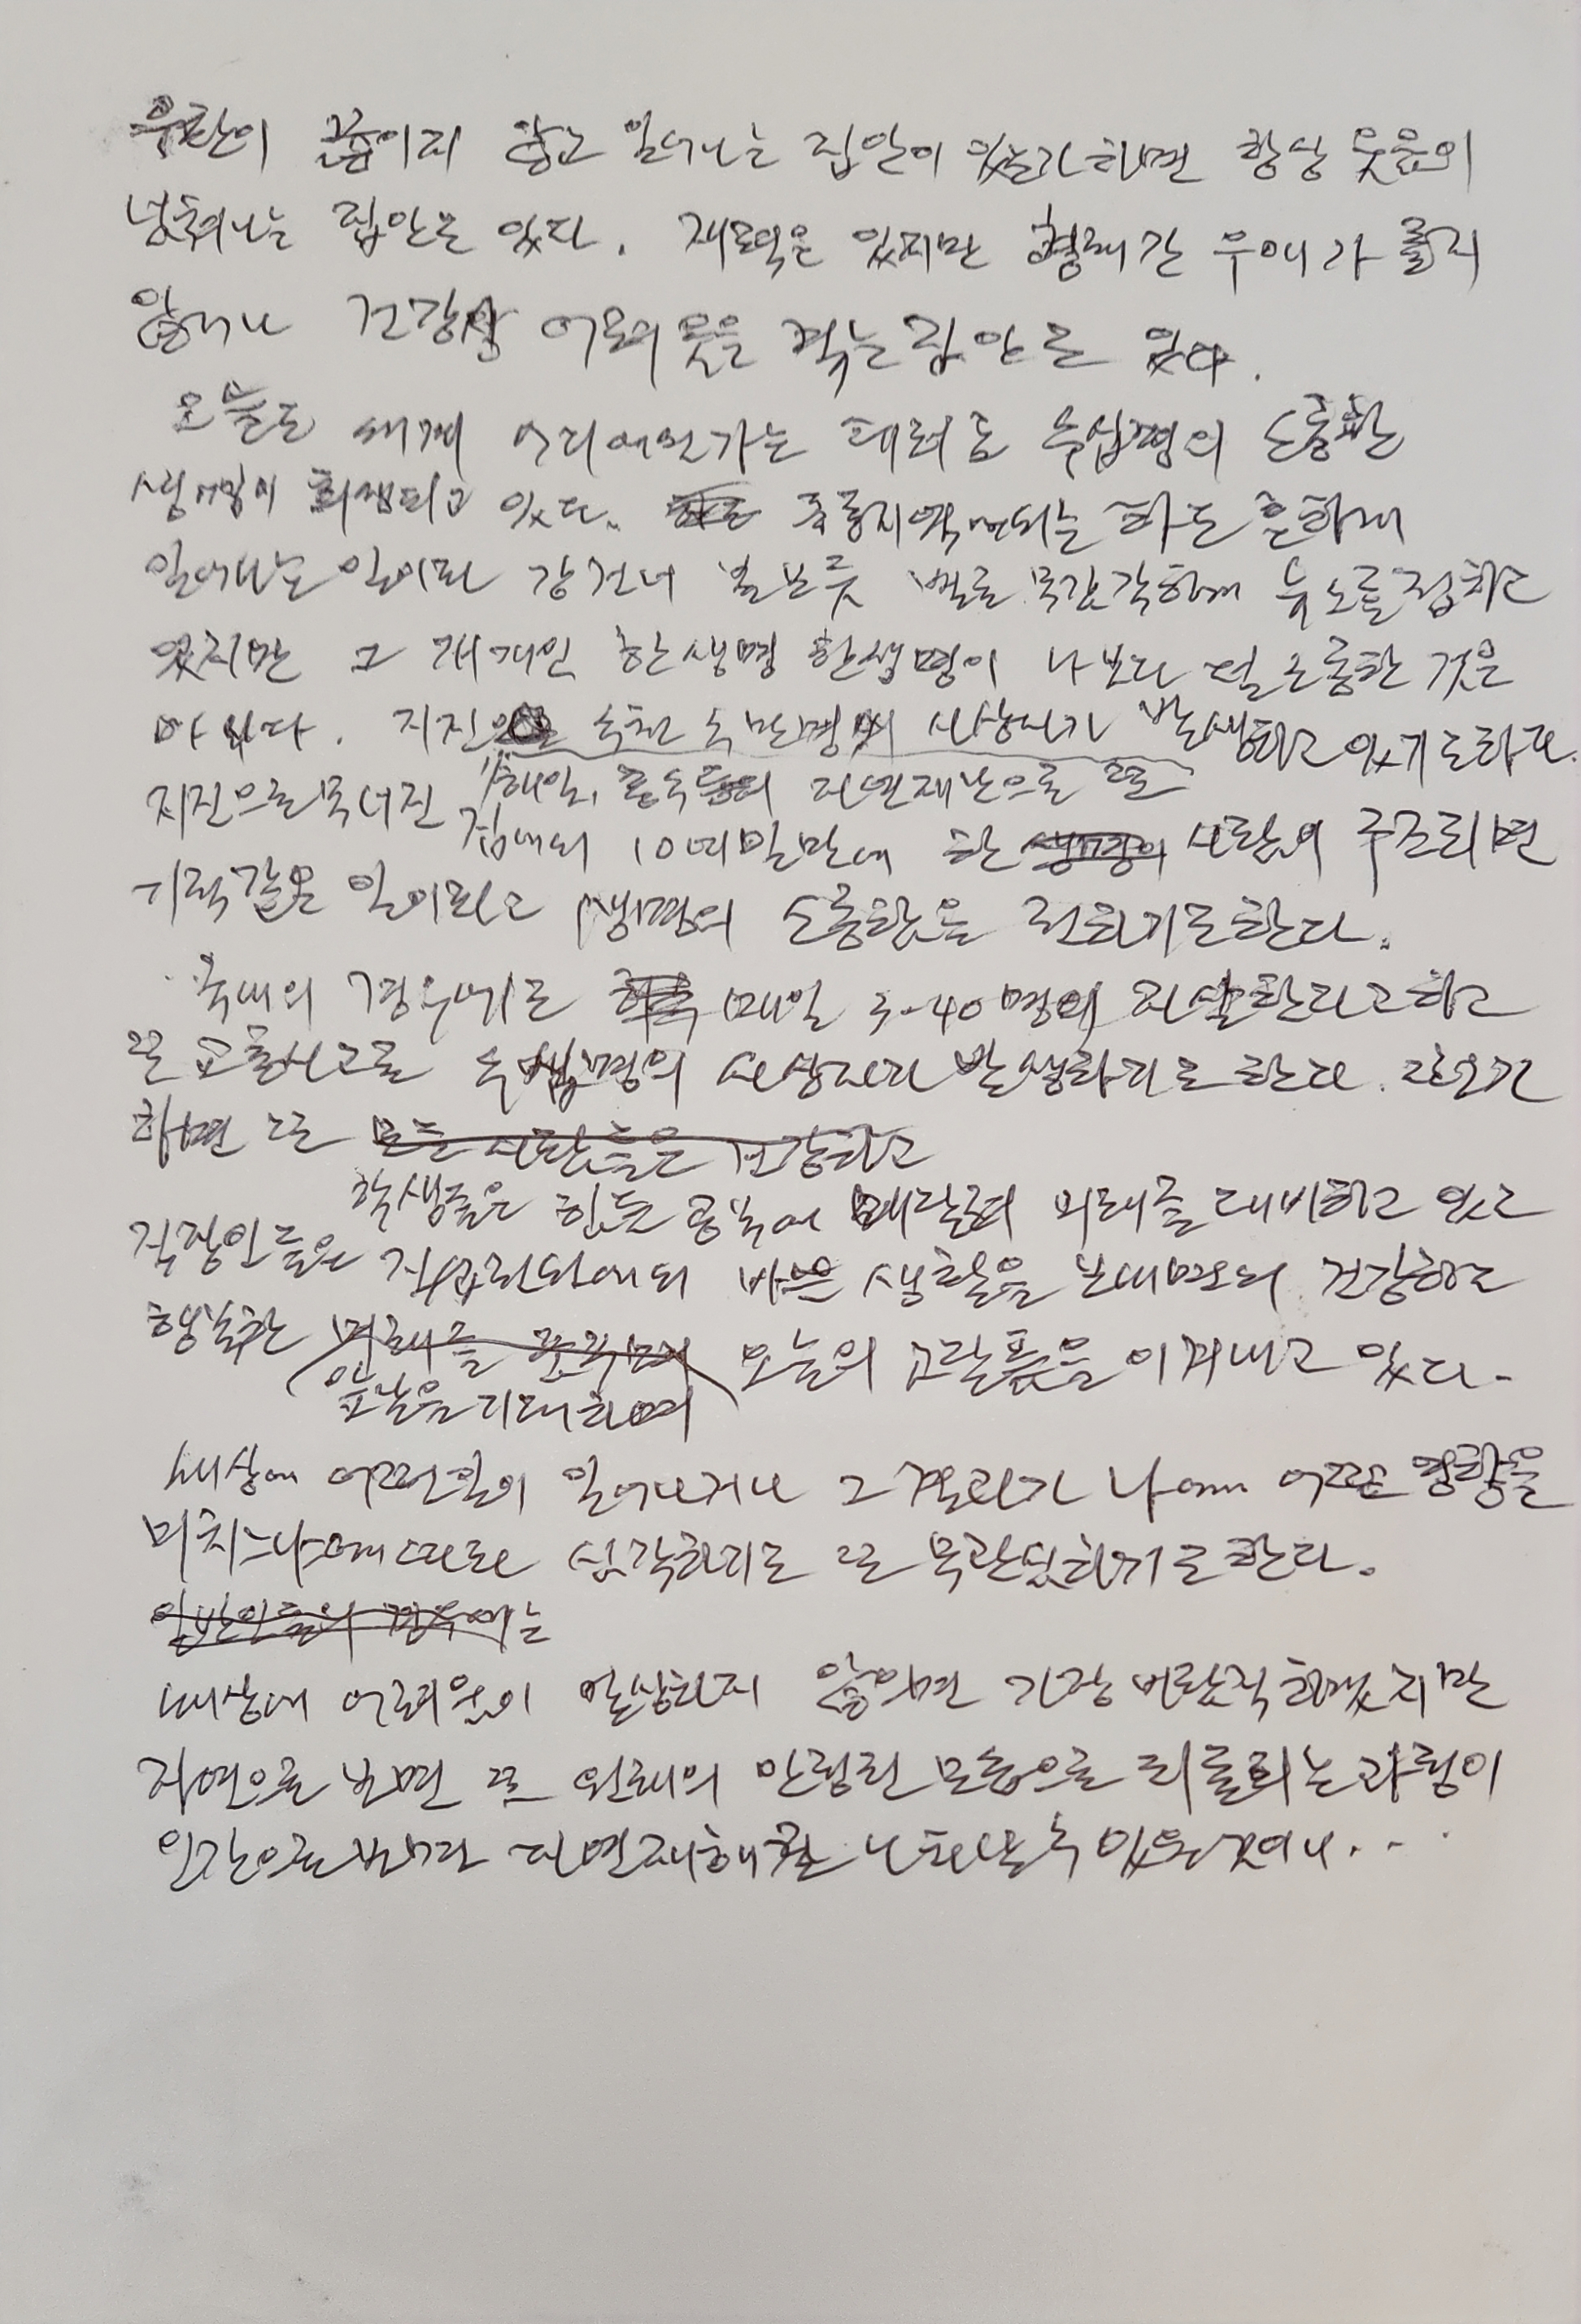 우환이 끊이지 않고 일어나는 집안이 있는가 하면 항상 웃음이
넘쳐나는 집안도 있다. 재력은 있지만 형제간 우애가 좋지
않거나 건강상 어려움을 겪는 집안도 있다.
오늘도 세계 어디에선가는 테러로 수십명의 소중한
생명이 희생되고 있다. 중동지역에서는 하도 흔하게
일어나는 일이라 강건너 불보듯 별로 무감각하게 뉴스를 접하고
있지만 그 개개인 한생명 한생명이 나보다 덜 소중한 것은
아니다. 지진 수천 수만명의 사상자가 발생하고 있기도 하다.
해일, 홍수 등의 자연재난으로 또
지진으로 무너진 집에서 10여일만에 한 생명이 사람이 구조되면
기적같은 일이라고 생명의 소중함을 전하기도 한다.
국내의 경우에도 매일 3-40명이 자살한다고 하고
또 교통사고로 수십명의 사상자가 발생하기도 한다. 그런가
하면 또 모든 사람들은 건강하고
학생들은 힘든 공부에 매달려 미래를 대비하고 있고
직장인들은 직업전선에서 바쁜 생활을 보내면서 건강하고
행복한 미래를 꿈꾸며 오늘의 고달픔을 이겨내고 있다.
앞날을 기대하며
세상에 어떤일이 일어나거나 그 결과가 나에게 어떤 영향을
미치느냐에 따라 심각하기도 또 무관심하기도 한다.
일반인들의 경우에는
세상에 어려움이 발생하지 않으면 가장 바람직하겠지만
자연으로 보면 또 원래의 안정된 모습으로 되돌리는 과정이
인간으로 보아 자연재해로 나타날 수 있는 것이니...